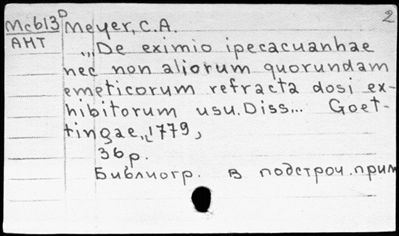 Mc613D Meyer, C.A. 2
АНТ „De eximio ipecacuanhae
nec non aliorum quorundam
emeticorum refracta dosi ex-
hibitorum usu. Diss... Goet-
tingae„ 1779,
36 p.
Библиогр. в подстроч. прим